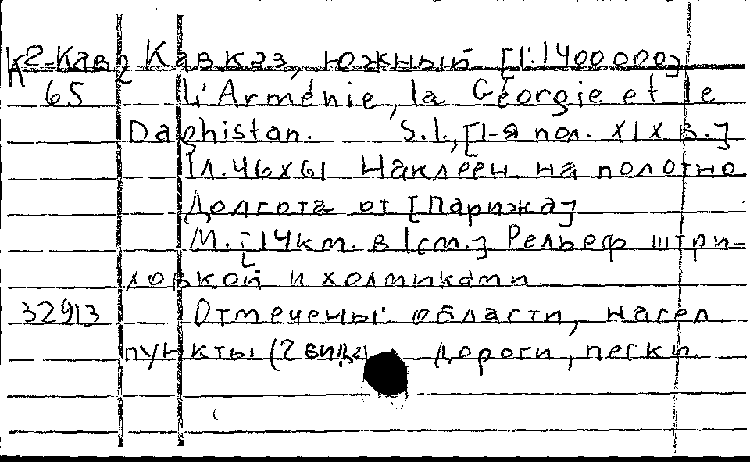 К2-Кав2 Кавказ, южный [1:1400000]
65 L'Arménie, la Géorgie et le
Daghistan. S.l., [1-я пол. XIX в.]
1л. 46х61 Наклеен на полотно
Долгота от [Парижа]
М. [14км. в 1см.] Рельеф штри-
ховкой и холмиками
32913 Отмечены: области, насел
пункты (2 вида) дороги, пески